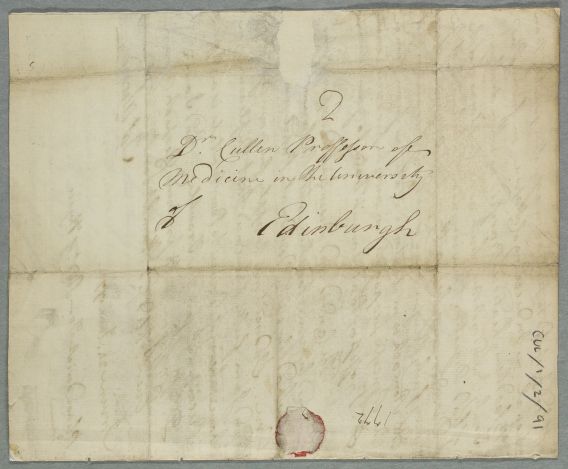 2
Dr. Cullen Professor of
Medicine in the University
of Edinburgh
CUL/1/2/91
1772